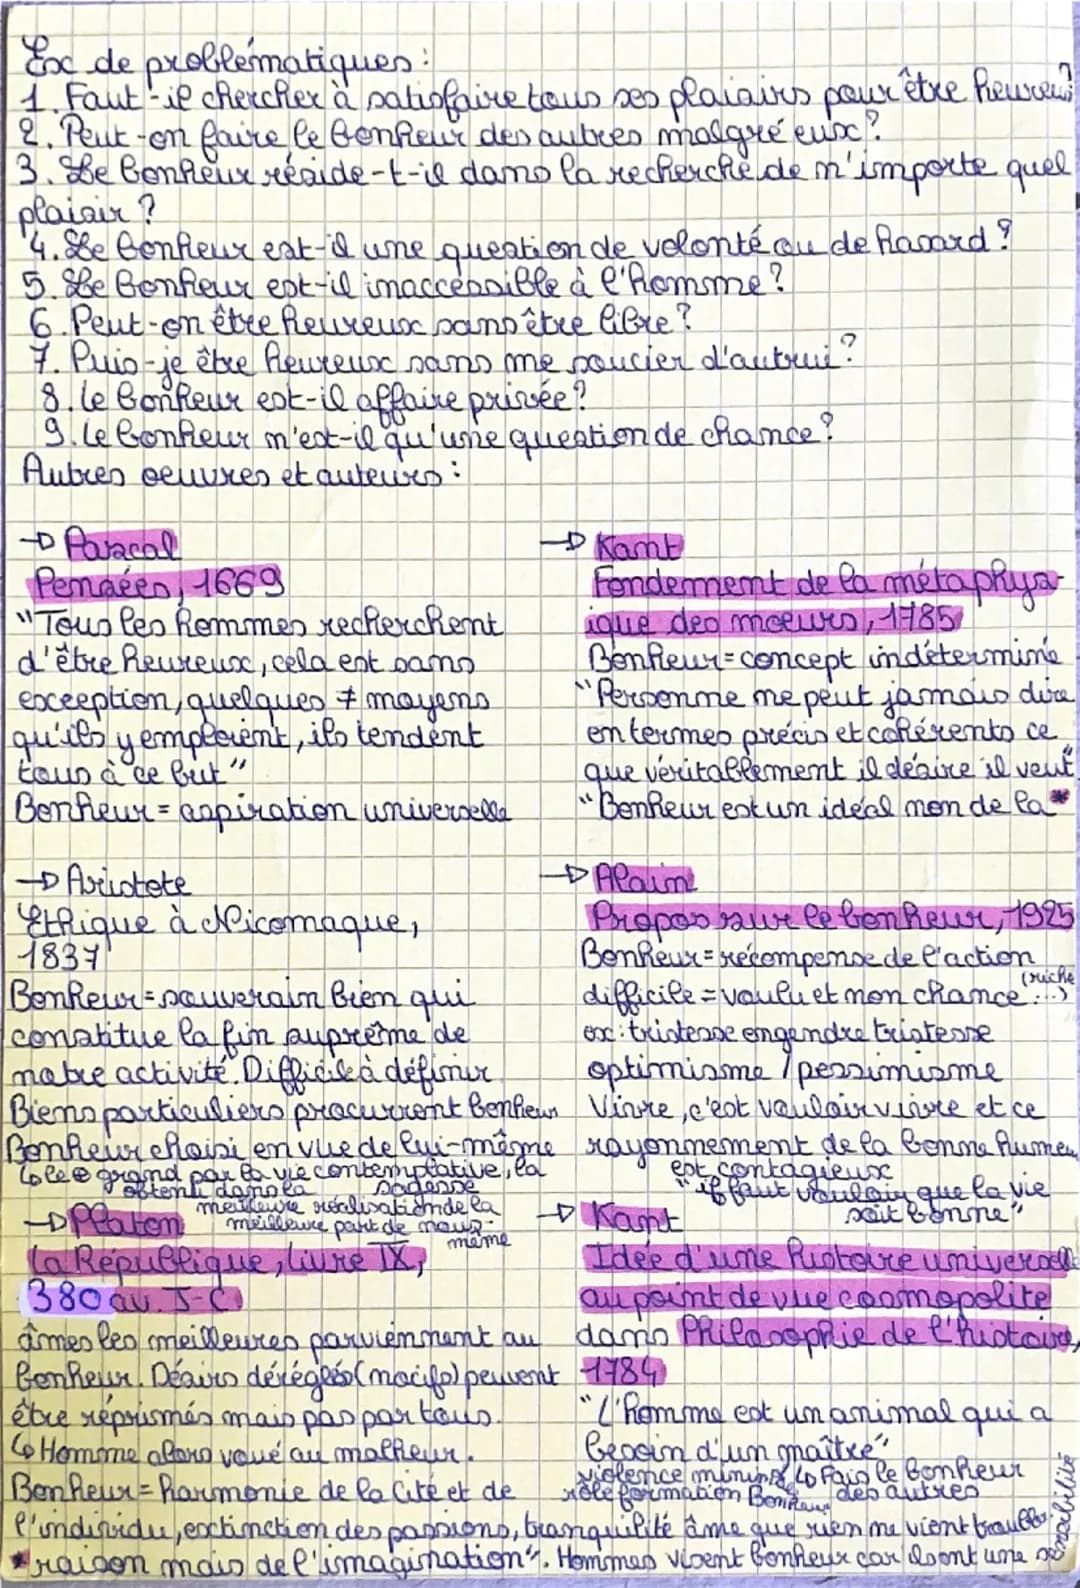 Ex de problématiques :
1. Faut-il chercher à satisfaire tous ses plaisirs pour être heureux?
2. Peut-on faire le bonheur des autres malgré eux?
3. Le bonheur réside-t-il dans la recherche de n'importe quel
plaisir?
4. Le bonheur est-il une question de volonté ou de hasard?
5. Le bonheur est-il inaccessible à l'homme?
6. Peut-on être heureux sans être libre?
7. Puis-je être heureux sans me soucier d'autrui?
8. le bonheur est-il affaire privée?
9. le bonheur n'est-il qu'une question de chance?
Autres oeuvres et auteurs :
→ Pascal
Pensées, 1669
"Tous les hommes recherchent
d'être heureux, cela est sans
exception, quelques ≠ moyens
qu'ils y emploient, ils tendent
tous à ce but"
Bonheur = aspiration universelle
→ Kant
Fondement de la métaphys-
ique des moeurs, 1785
Bonheur = concept indéterminé
"Personne ne peut jamais dire
en termes précis et cohérents ce
que véritablement il désire il veut"
"Bonheur est un idéal non de la *
→ Aristote
Ethique à Nicomaque,
1837
Bonheur = souverain bien qui
constitue la fin suprême de
notre activité. Difficile à définir
Biens particuliers procurrent bonheur
Bonheur choisi en vue de lui-même
↳ le ⊕ grand par la vie contemplative, la
sagesse
obtenu dans la
meilleure réalisation de la
meilleure part de nous-
même
→ Alain
Propos sur le bonheur, 1925
Bonheur = récompense de l'action
difficile = voulu et non chance (riche...)
ex: tristesse engendre tristesse
optimisme / pessimisme
Vivre, c'est vouloir vivre et ce
rayonnement de la bonne humeur
est contagieux
"il faut vouloir que la vie
soit bonne"
→ Platon
La République, Livre IX,
380 av. J-C
âmes les meilleures parviennent au
bonheur. Désirs déréglés (nocifs) peuvent
être réprimés mais pas par tous.
↳ Homme alors voué au malheur.
Bonheur = harmonie de la Cité et de
l'individu, extinction des passions, tranquilité âme que rien ne vient troubler
→ Kant
Idée d'une histoire universelle
au point de vue cosmopolite
dans Philosophie de l'histoire,
1784
"L'homme est un animal qui a
besoin d'un maître"
violence ↳ Fais le bonheur
des autres
rôle formation Bonheur
* raison mais de l'imagination". Hommes visent bonheur car ils ont une sensibilité